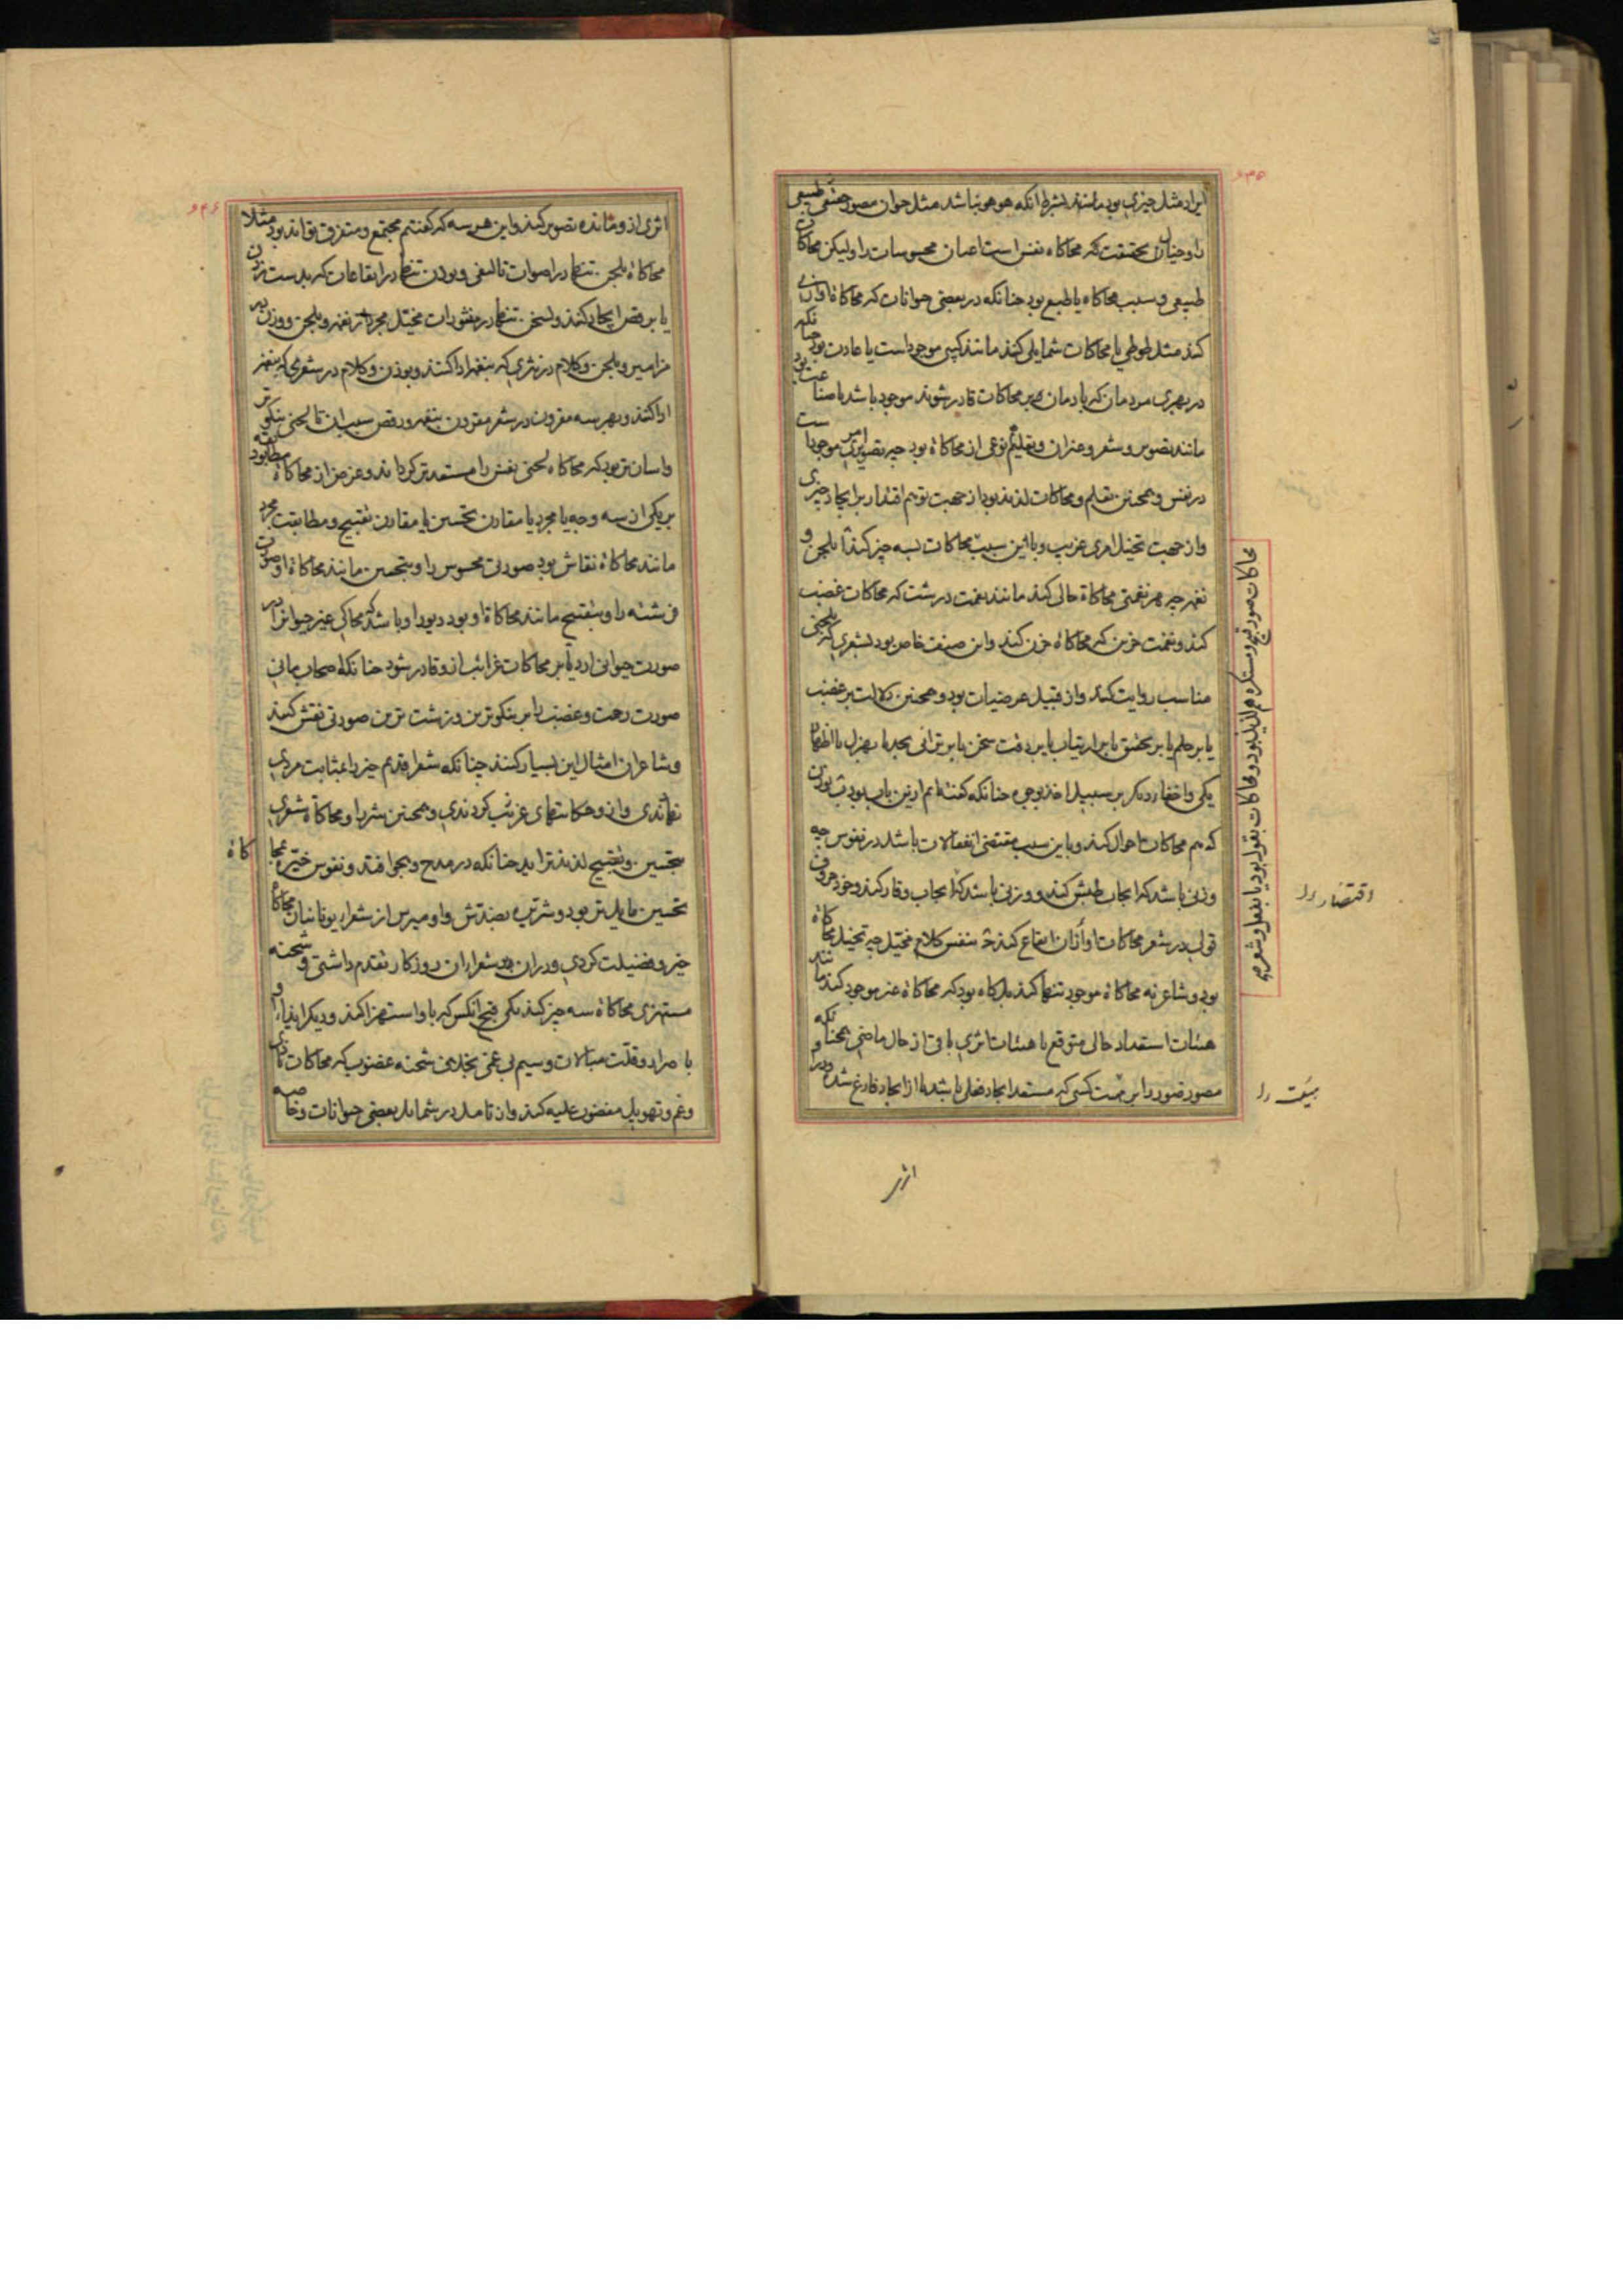 ایراد مثل چیزی بود مانند بشرط آنکه هو هو نباشد مثل حیوان مصور حیوان طبیعی
را و خیال بحقیقت محاکاه نفس است اعیان محسوسات را ولیکن محاکاتی
طبیعی و سبب محاکاه یا طبع بود چنانکه در بعضی حیوانات که محاکاة آوازی
کند مثل طوطی یا محاکات شمایلی کند مانند کپی موجود است یا عادت بود چنانکه
در بهری مردمان که بادمان بر محاکات قادر شوند موجود باشد یا صناعت بود
مانند تصویر و شعر و غیر آن و تعلیم نوعی از محاکاة بود چه تصویر امری موجود است
در نفس و همچنین تعلم و محاکات لذیذ بود از جهت توهم اقتدار بر ایجاد چیزی
و از جهت تخیل امری غریب و باین سبب محاکات بسه چیز کنند آ بلحن و
نغمه چه هر نغمتی محاکاة حالی کند مانند نغمت درشت که محاکات غضب
کند و نغمت حزین که محاکاة حزن کند و این صنف خاص بود بشعری که بلحنی
مناسب روایت کنند و از قبیل عرضیات بود و همچنین دلالت بر غضب
یا بر حلم یا بر تحقیق یا بر ارتیاب یا بر دقت سخن یا بر توانی بجد یا بهزل یا اظهار
یکی و اخفاء دیگر بر سبیل اخذ بوجوه چنانکه گفته‌ایم ازین باب بود ب بوزن
که هم محاکات احوال کند و باین سبب مقتضی انفعالات باشد در نفوس چه
وزنی باشد که ایجاب طیش کند و وزنی باشد که ایجاب وقار کند و خود حروف
قولی در شعر محاکات اوزان ایقاع کند ج بنفس کلام مخیل چه تخییل محاکاة
بود و شاعر نه محاکاة موجود تنها کند بل گاه بود که محاکاة غیر موجود کند مانند
هیئات استعداد حالی متوقع یا هیئات اثری باقی از حال ماضی همچنانکه
مصور صور را بر هیئت کسی که مستعد ایجاد فعلی باشد یا از ایجاد فارغ شده و
محاکات صور قبیح و مستکره هم لذیذ بود و محاکات بقول بود یا بفعل و شعر
اقتضاء را
هیئت را
اثر
۶۴۶
اثری ازو مانده تصویر کند و این هر سه که گفتیم مجتمع و متفرق تواند بود مثلا
محاکاة بلحن تنها در اصوات تالیفی و بوزن تنها در ایقاعات که بدست زدن
یا برقص ایجاد کنند و بسخن تنها در منثورات مخیل مجرد از نغمه و بلحن و وزن در
مزامیر و بلحن و کلام در نثری که بنغمه ادا کنند و بوزن و کلام در شعری که بی نغمه
ادا کنند و بهر سه مقرون در شعر مقرون بنغمه و رقص سبب آن تا لحنی نیکوتر
و آسان‌تر بود که محاکاه لحنی نفس را مستعدتر گرداند و غرض از محاکاة مطابقه بود
بر یکی از سه وجه یا مجرد یا مقارن تحسین یا مقارن تقبیح و مطابقت مجرد
مانند محاکاة نقاش بود صورتی محسوس را و بتحسین مانند محاکاة او صورت
فرشته را و بتقبیح مانند محاکاة او بود دیو را و باشد که محاکی غیر حیوان را در
صورت حیوانی آرد تا بر محاکات غرائب ازو قادر شود چنانکه اصحاب مانی
صورت رحمت و غضب را بر نیکوترین و زشت‌ترین صورتی نقش کنند
و شاعران امثال این بسیار کنند چنانکه شعراء قدیم خیر را بمثابت مردی
نهاندی و ازو حکایتهای غریب کردندی و همچنین شر را و محاکاة شعری
بتحسین و تقبیح لذیذتر آید چنانکه در مدح و هجو افتد و نفوس خیره بمحاکاة
تحسین مایل‌تر بود و شریره بضدش و اومیرس از شعراء یونانیان محاکاة
خیر و فضیلت کردی و در آن شعراء آن روزگار تقدم داشتی و شحنه
مستهزی محاکاة سه چیز کند یکی قبح آنکس که باو استهزا کند و دیگر ایذاء او
با اصرار و قلت مبالات و سیم بی غمی بخلاف شحنه غضوب که محاکات تاذی
و غم و تهویل مغضوب علیه کند و از تامل در شمایل بعضی حیوانات و خاصه
کاة